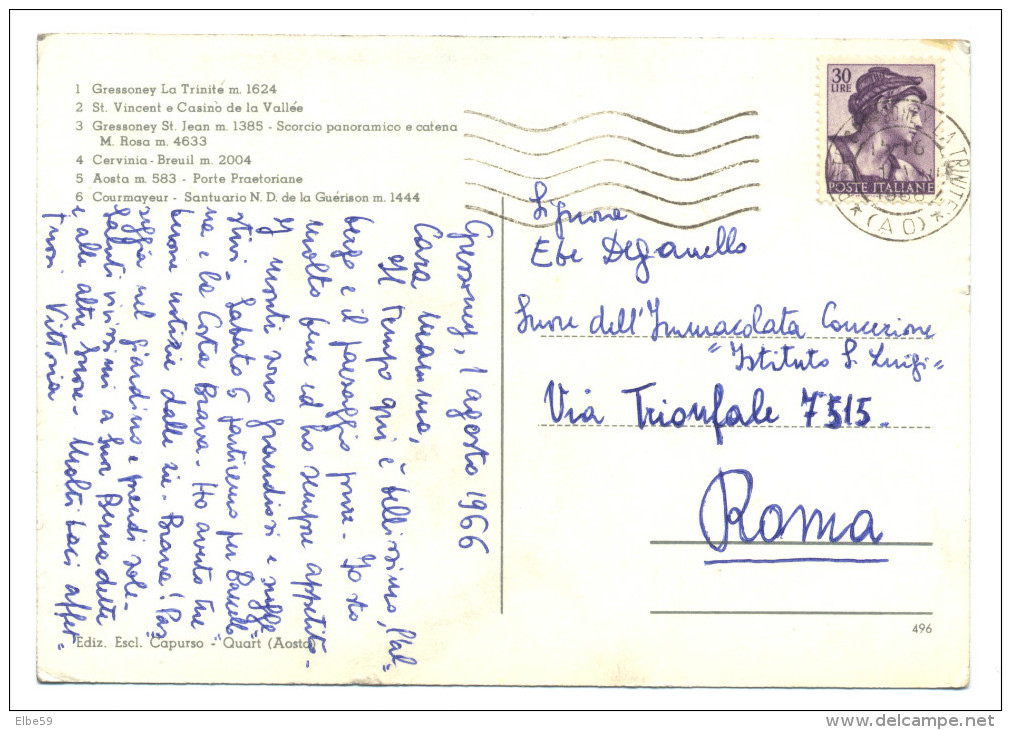 1 Gressoney La Trinité m. 1624
2 St. Vincent e Casinò de la Vallée
3 Gressoney St. Jean m. 1385 - Scorcio panoramico e catena
M. Rosa m. 4633
4 Cervinia - Breuil m. 2004
5 Aosta m. 583 - Porte Praetoriane
6 Courmayeur - Santuario N. D. de la Guérison m. 1444
Gressoney, 1 agosto 1966
Cara mamma,
Il tempo qui è bellissimo, l'al=
bergo e il paesaggio pure - Io sto
molto bene ed ho sempre appetito -
I monti sono grandiosi e
Sabato 6 partiremo per
e la Costa Brava - Ho avuto tue
buone notizie dalle zie - Brava! Pas
seggia nel giardino e prendi sole -
Saluti vivissimi a Suor Bernadette
e alle altre Suore - Molti baci affet=
tuosi Vittoria
Ediz. Escl. Capurso - Quart (Aosta)
30
LIRE
POSTE ITALIANE
LA TRINITE
* (AO) *
Signora
Ebe Deganello
Suore dell'Immacolata Concezione
"Istituto S. Luigi=
Via Trionfale 7515.
Roma
496
Elbe59
www.delcampe.net